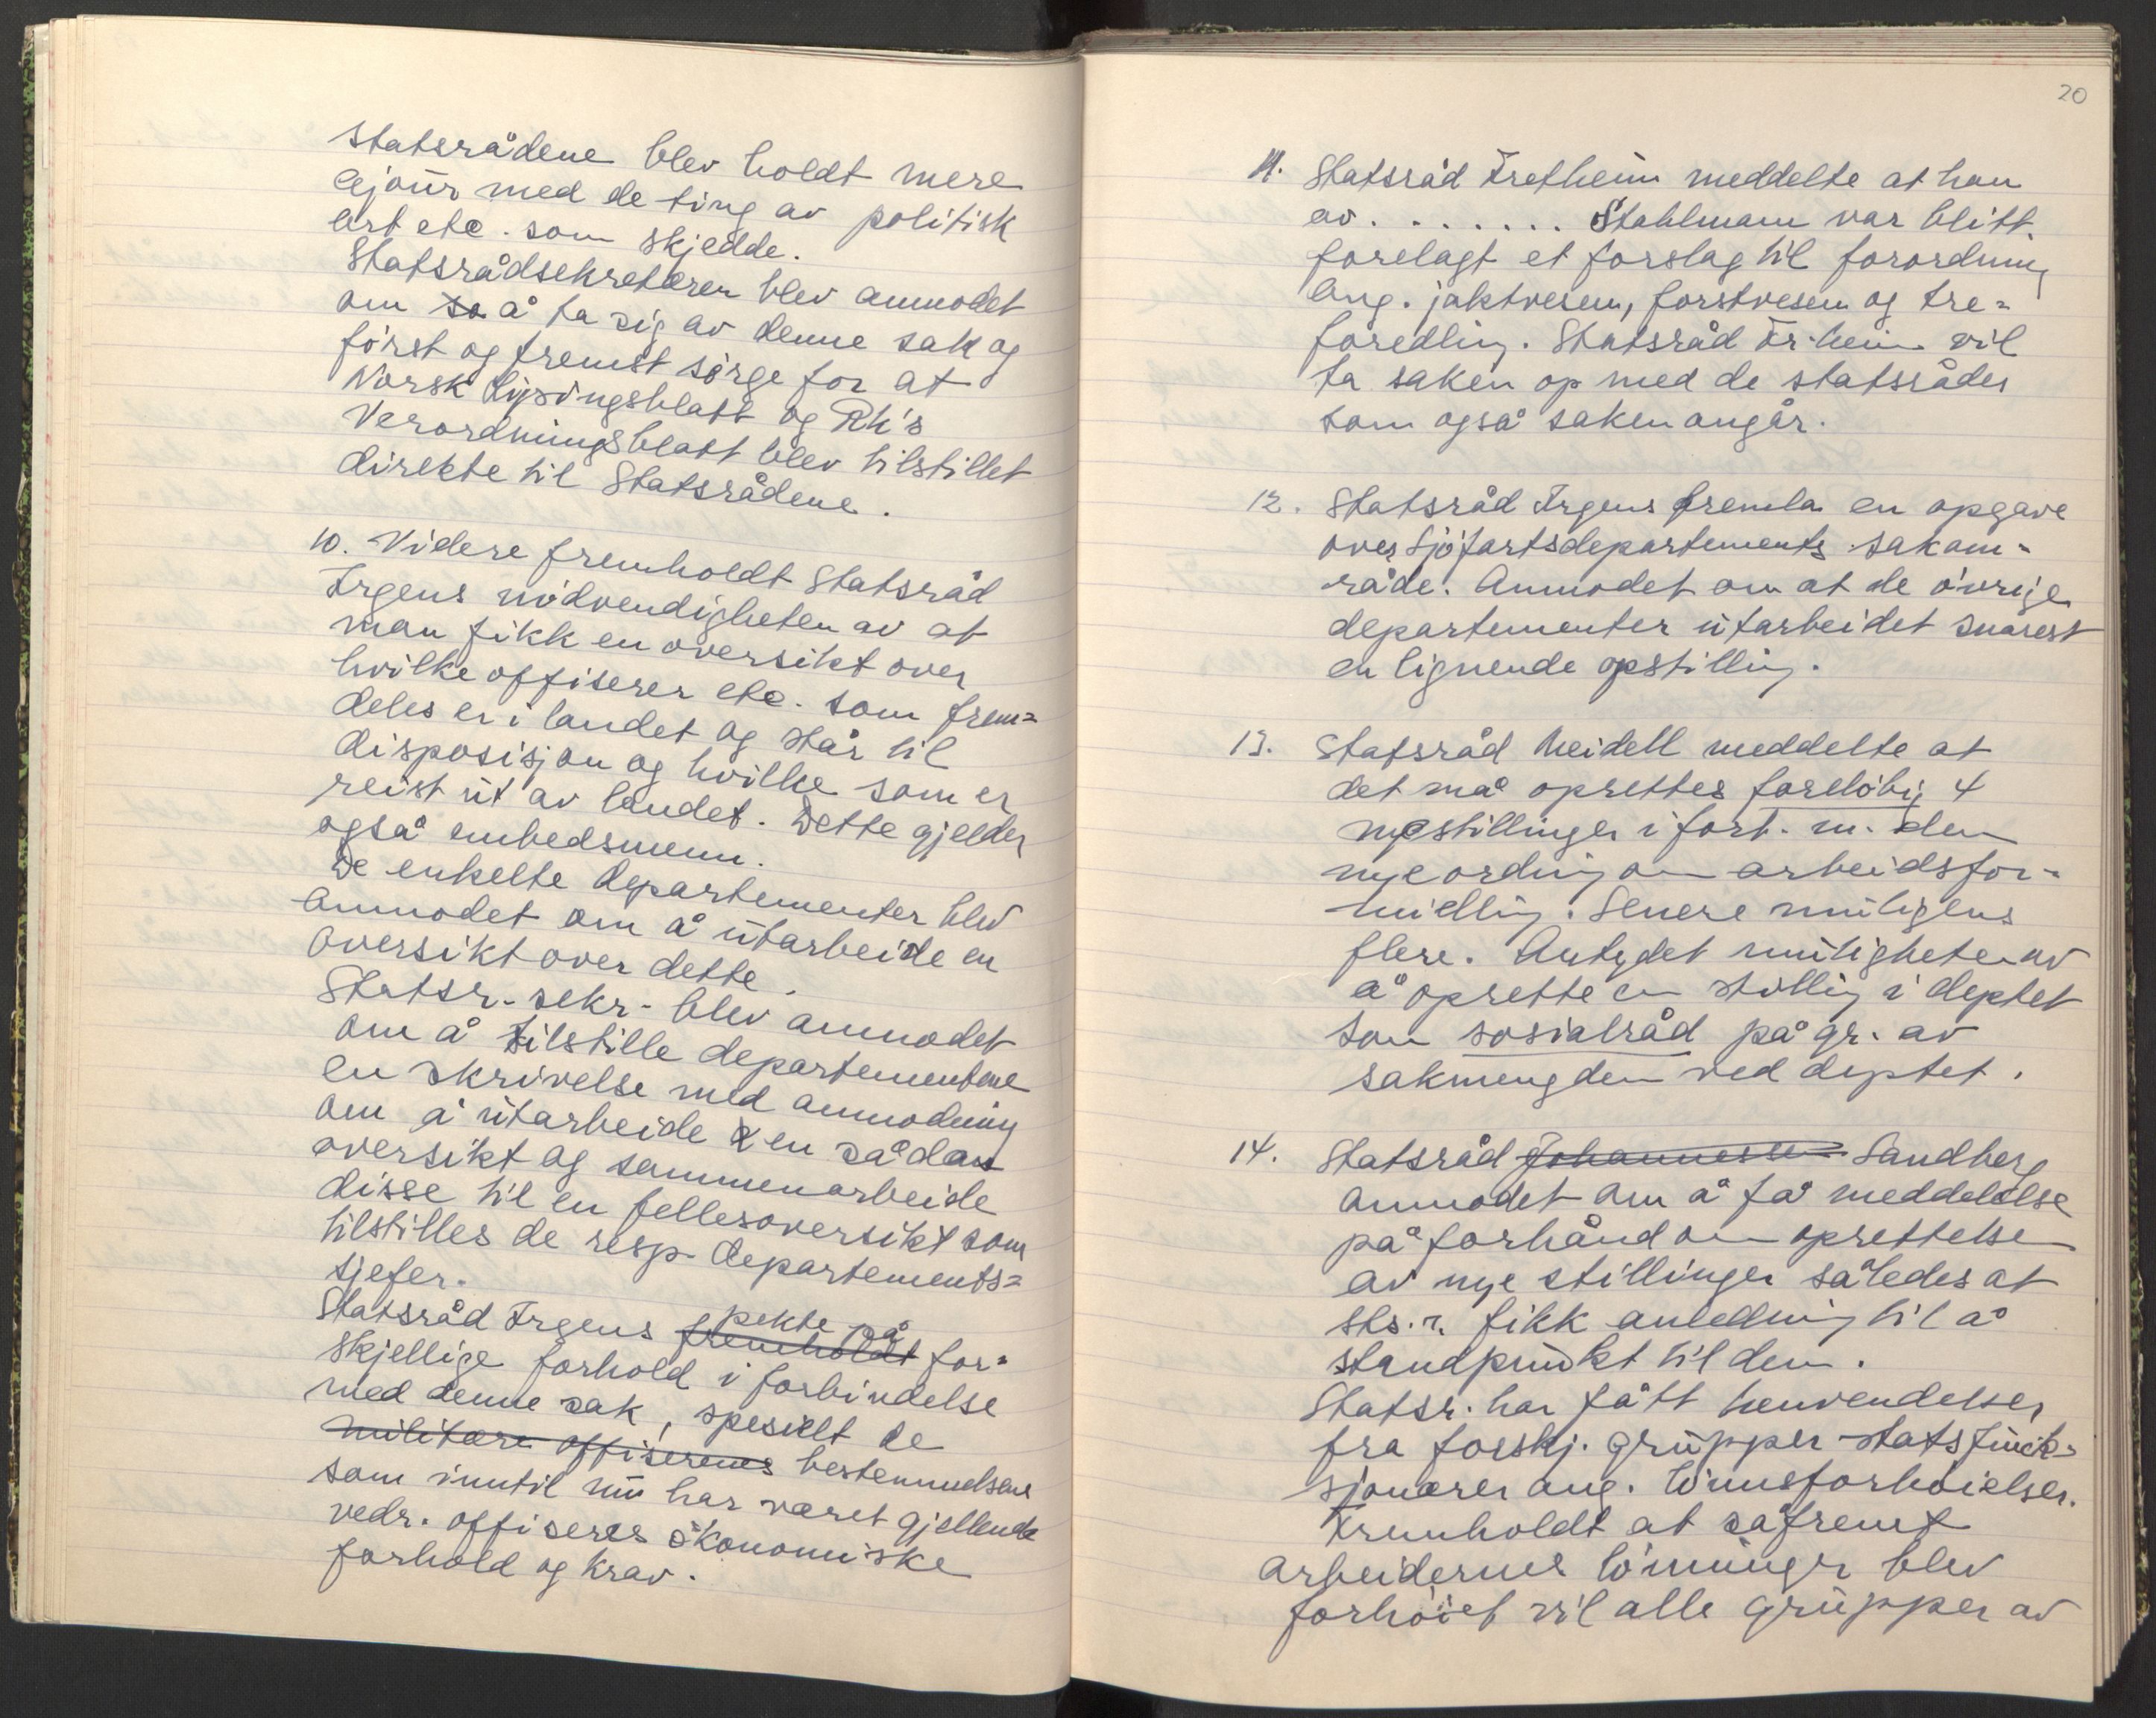 statsrådene blev holdt mere
ajour med de ting av politisk
art etc. som skjedde.
Statsrådsekretæren blev anmodet
om så å ta sig av denne sak og
först og fremst sörge for at
Norsk Lysingsblatt og Rk's
Verordnungsblatt blev tilstillet
direkte til Statsrådene.
10. Videre fremholdt Statsråd
Irgens nödvendigheten av at
man fikk en oversikt over
hvilke offiserer etc. som frem=
deles er i landet og står til
disposisjon og hvilke som er
reist ut av landet. Dette gjelder
også embedsmenn.
De enkelte departementer blev
anmodet om å utarbeide en
oversikt over dette.
Statsr.-sekr. blev anmodet
om å tilstille departementene
en skrivelse med anmodning
om å utarbeide en sådan
oversikt og sammenarbeide
disse til en fellesoversikt som
tilstilles de resp. departements=
sjefer.
Statsråd Irgens fremholdt pekte på for=
skjellige forhold i forbindelse
med denne sak, spesielt de
militære offiserenes bestemmelsene
som inntil nu har været gjellende
vedr. offiseres ökonomiske
forhold og krav.
20
11. Statsråd Fretheim meddelte at han
av . . . . . . . Stahlmann var blitt
forelagt et forslag til forordning
ang. jaktvesen, forstvesen og tre=
foredling. Statsråd Fr.heim vil
ta saken op med de statsråder
som også saken angår.
12. Statsråd Irgens fremla en opgave
over Sjöfartsdepartements sakom=
råde. Anmodet om at de övrige
departementer utarbeidet snarest
en lignende opstilling.
13. Statsråd Meidell meddelte at
det må oprettes forelöbig 4
nye stillinger i forb. m. den
nye ordning om arbeidsfor=
midling. Senere muligens
flere. Antydet muligheten av
å oprette en stilling i deptet
som sosialråd på gr. av
sakmengden ved deptet.
14. Statsråd Johannessen Sandberg
anmodet om å få meddelelse
på forhånd om oprettelse
av nye stillinger således at
sts. r. fikk anledning til å
standpunkt til dem.
Statsr. har fått henvendelser
fra forskj. grupper statsfunk=
sjonærer ang. lönnsforhöielser.
Fremholdt at såfremt
arbeidernes lönninger blev
forhöiet vil alle grupper av